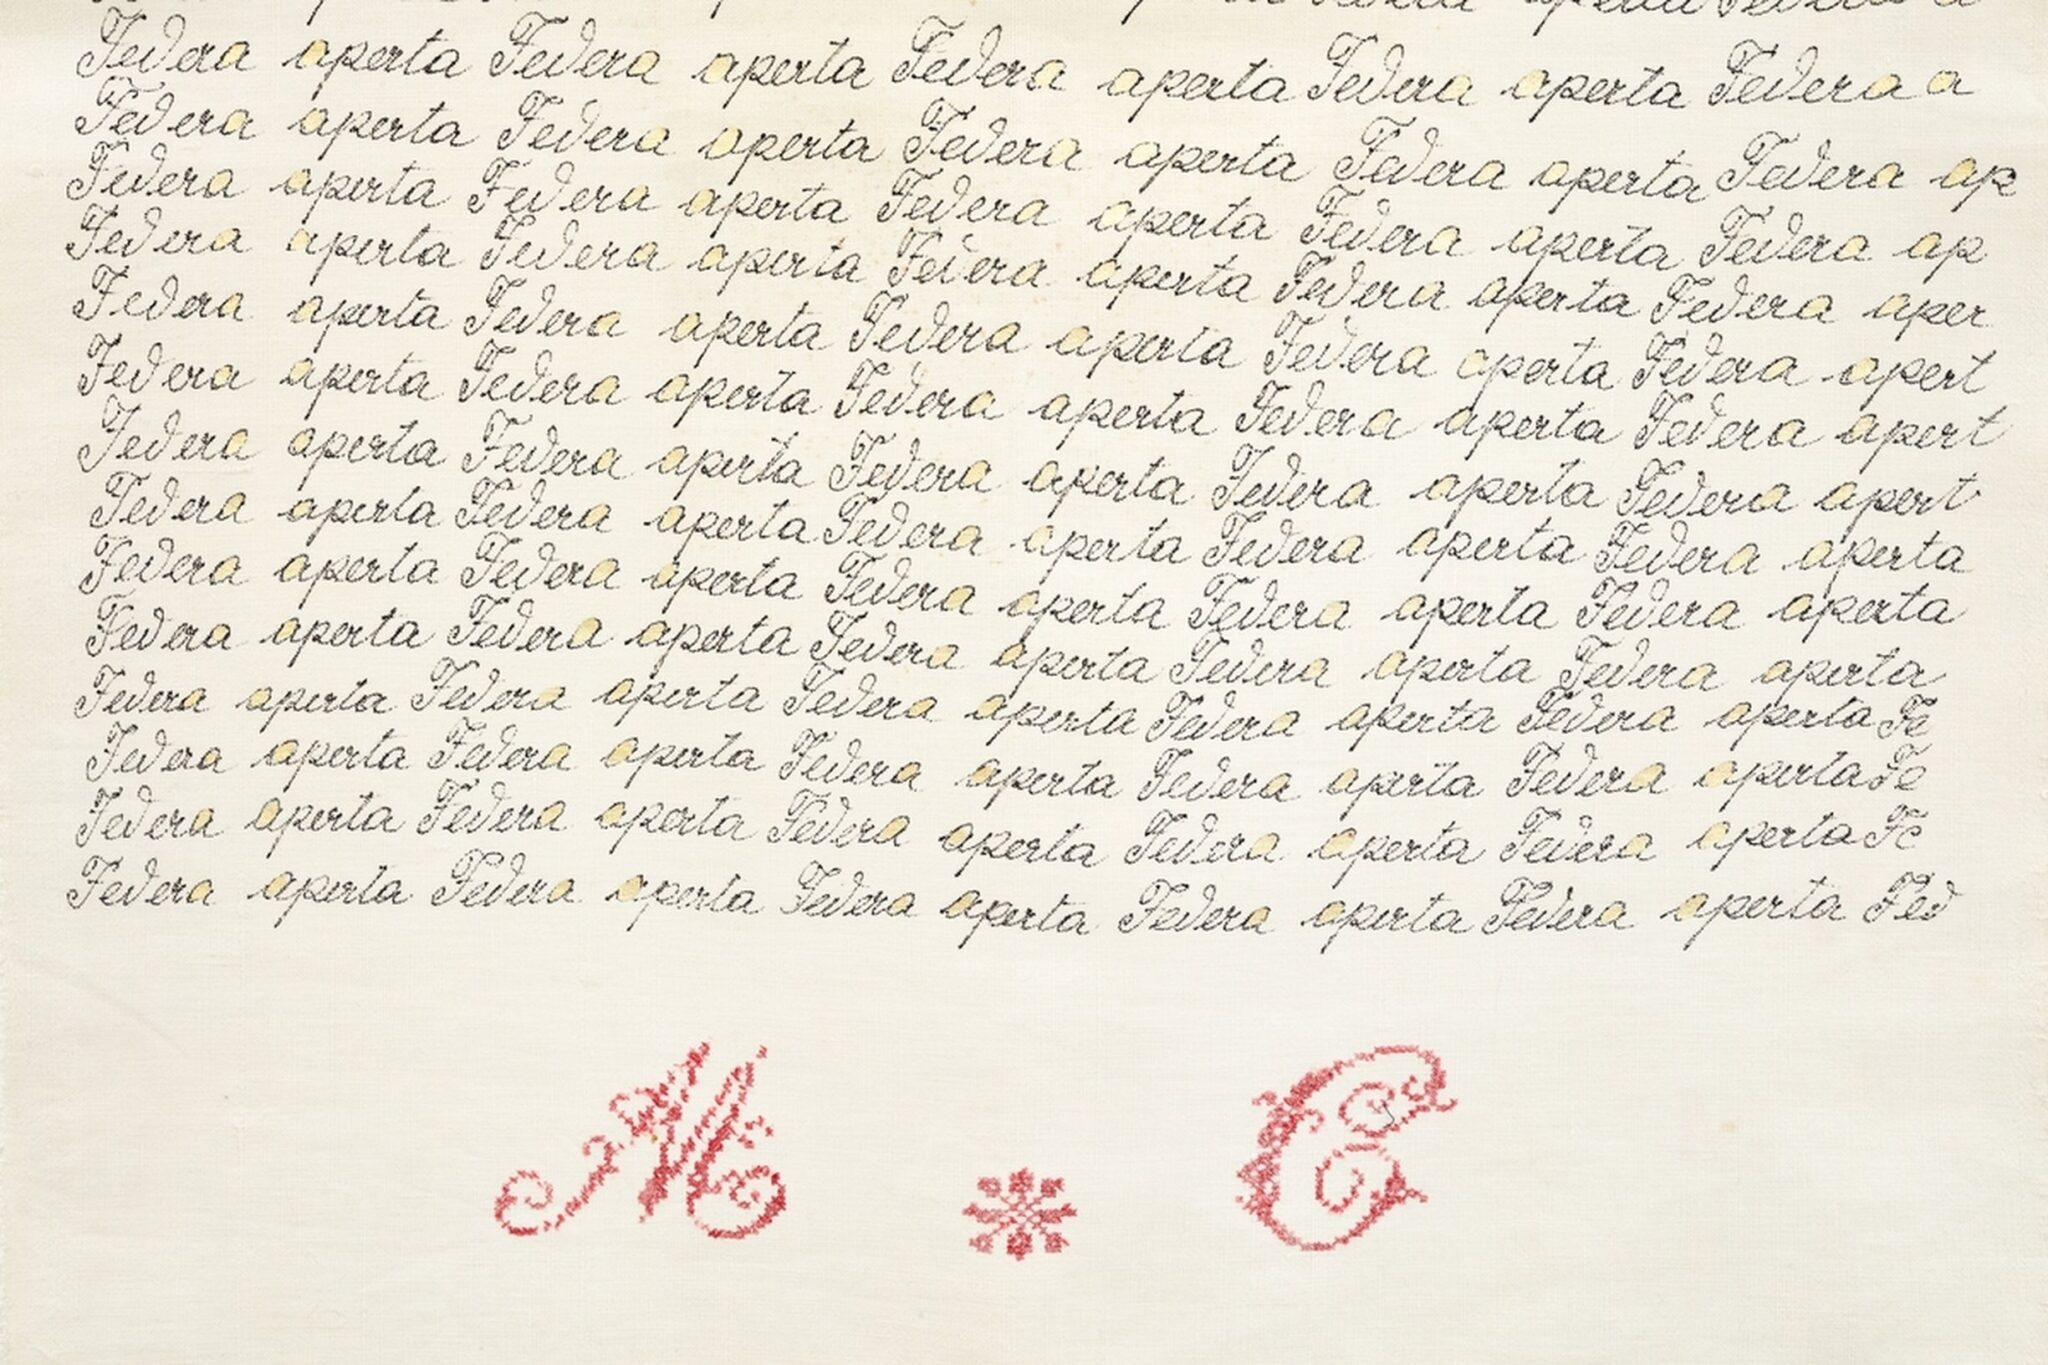 aperta Federa a
Federa aperta Federa aperta Federa aperta Federa aperta Federa a
Federa aperta Federa aperta Federa aperta Federa aperta Federa ap
Federa aperta Federa aperta Federa aperta Federa aperta Federa ap
Federa aperta Federa aperta Federa aperta Federa aperta Federa aper
Federa aperta Federa aperta Federa aperta Federa aperta Federa apert
Federa aperta Federa aperta Federa aperta Federa aperta Federa apert
Federa aperta Federa aperta Federa aperta Federa aperta Federa apert
Federa aperta Federa aperta Federa aperta Federa aperta Federa aperta
Federa aperta Federa aperta Federa aperta Federa aperta Federa aperta
Federa aperta Federa aperta Federa aperta Federa aperta Federa aperta
Federa aperta Federa aperta Federa aperta Federa aperta Federa aperta Fe
Federa aperta Federa aperta Federa aperta Federa aperta Federa aperta Fe
Federa aperta Federa aperta Federa aperta Federa aperta Federa aperta Fe
Federa aperta Federa aperta Federa aperta Federa aperta Federa aperta Fed
M C